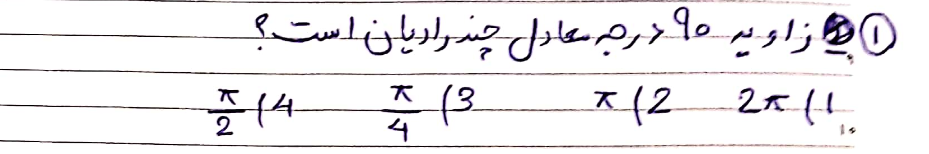 ① زاویه ۹۰ درجه معادل چند رادیان است؟
1) 2π 2) π 3) π/4 4) π/2